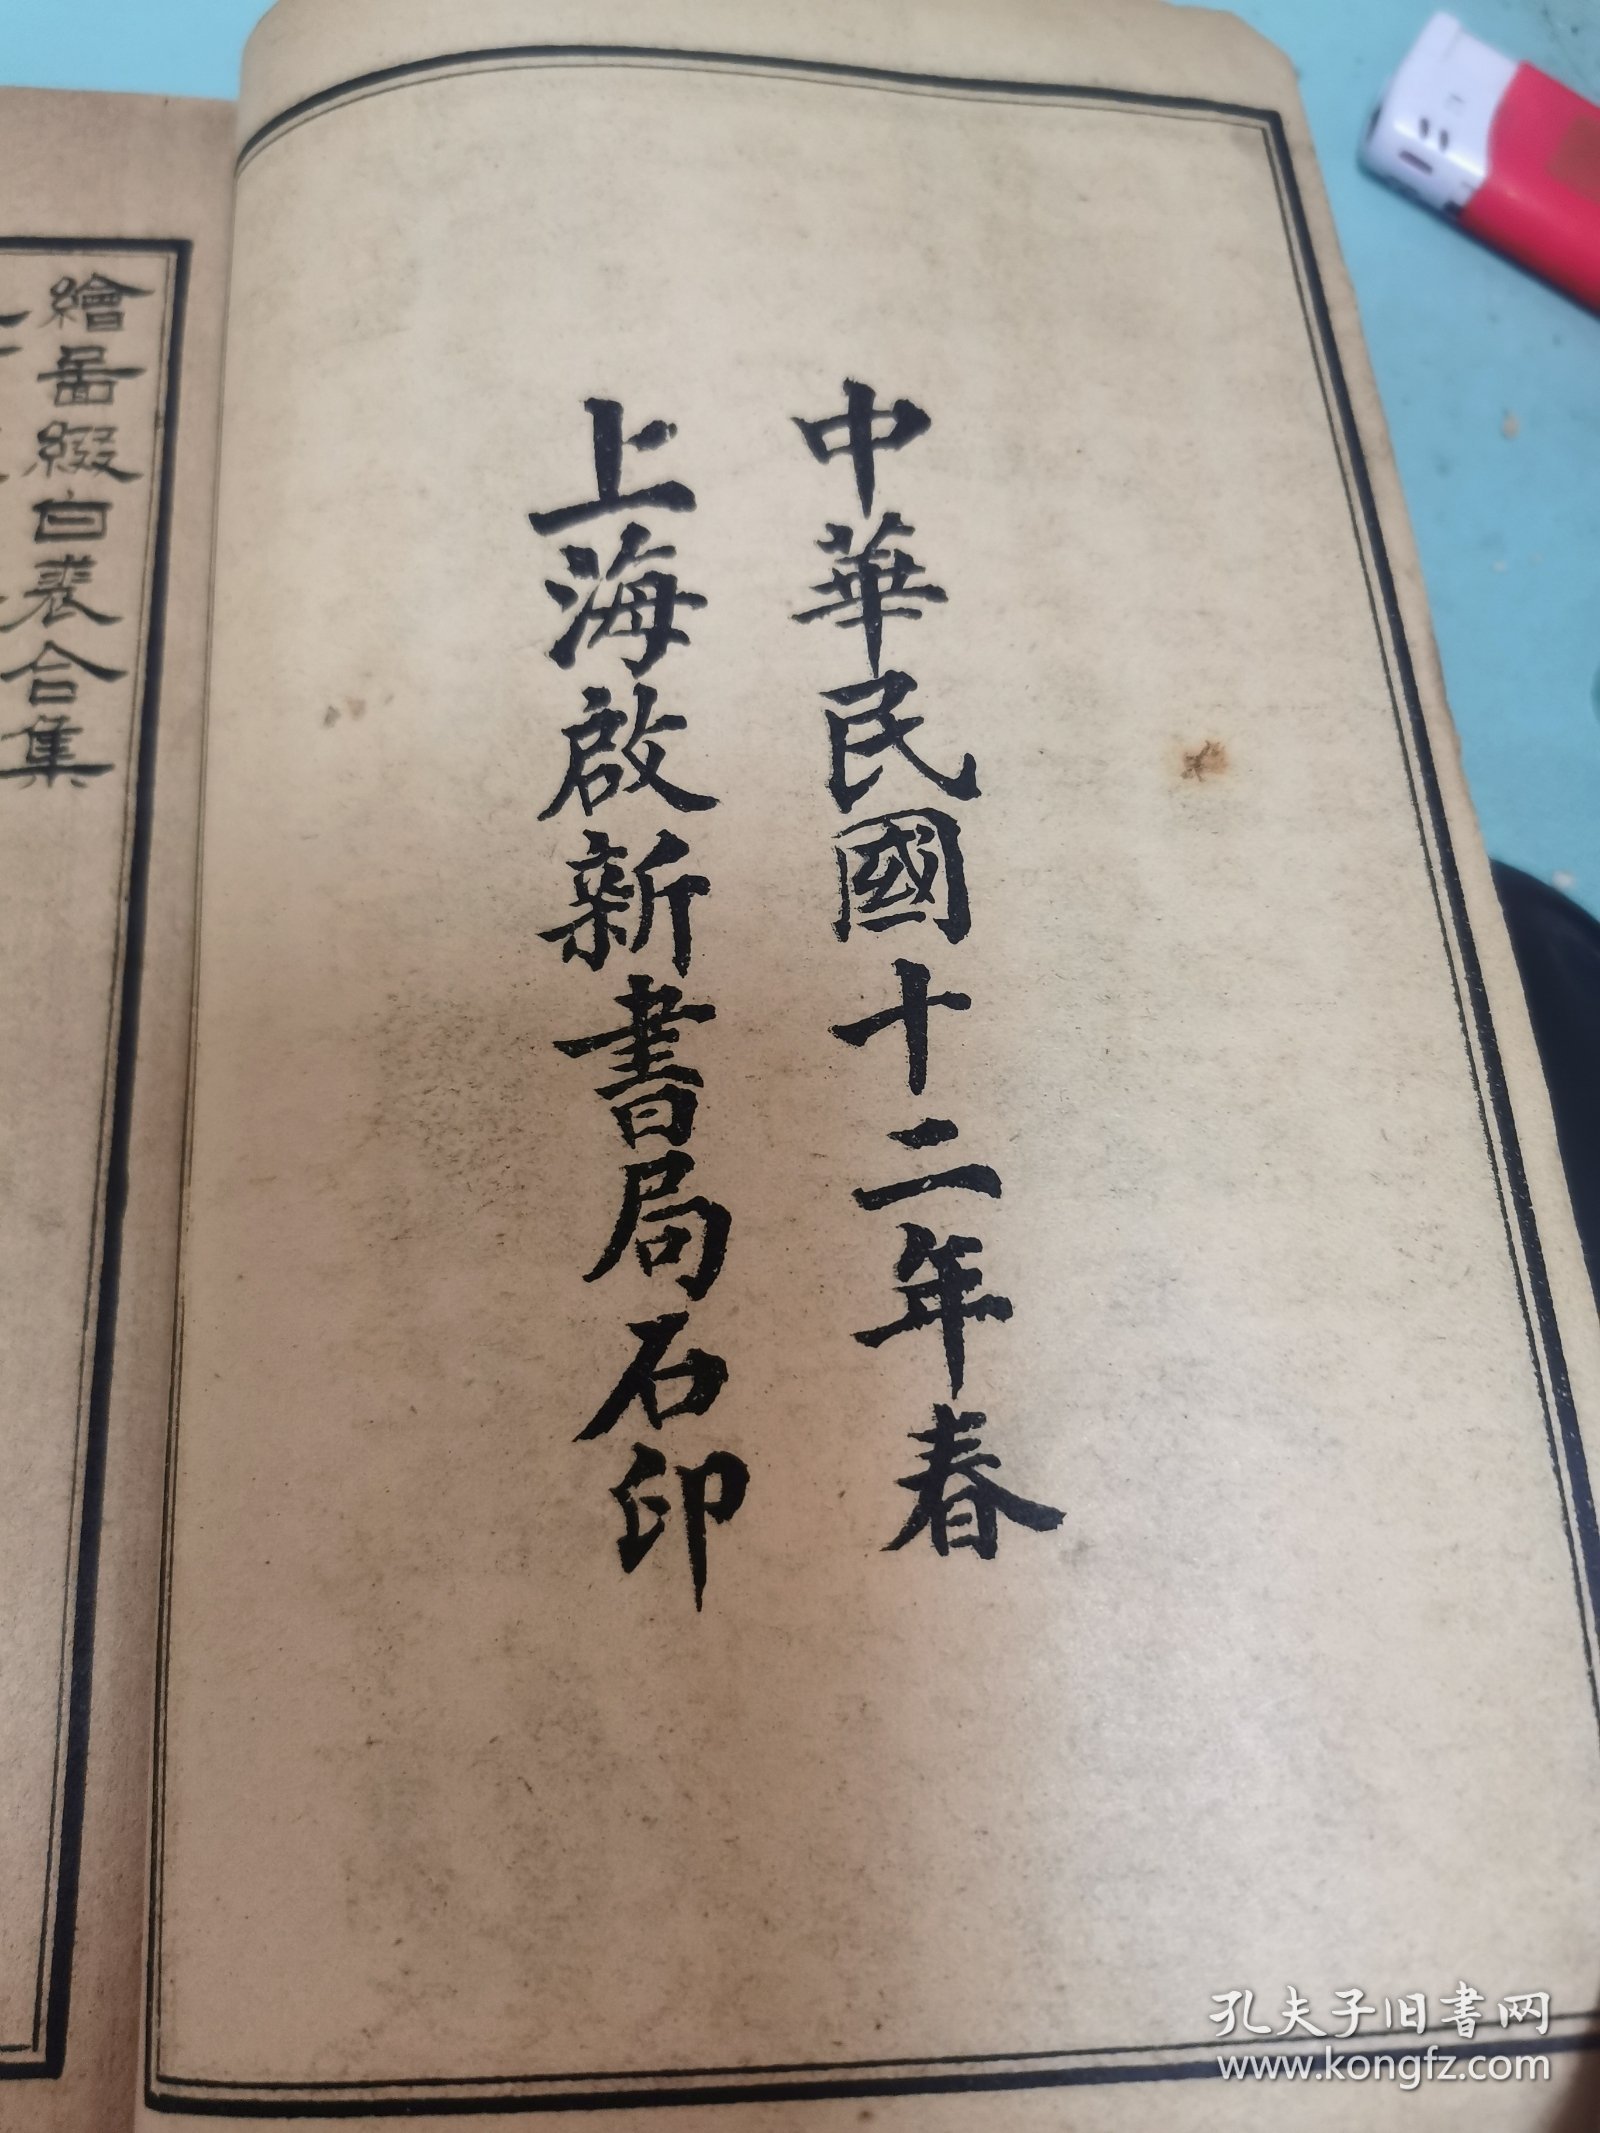 中華民國十二年春
上海啟新書局石印
繪啚綴白裘合集
孔夫子旧书网
www.kongfz.com